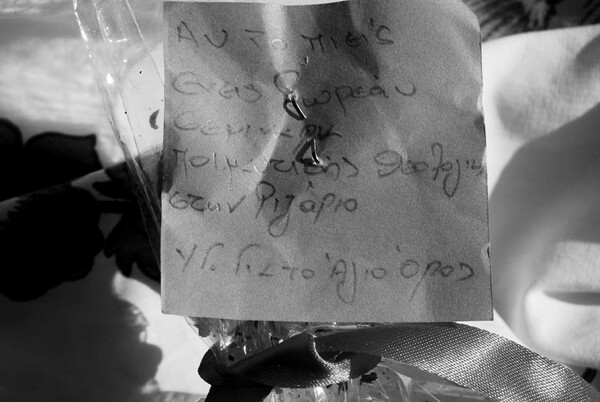 Αν το πιείς
έχεις δωρεάν
σεμινάριο
ποιμαντικής θεολογίας
στην Ριζάριο
Υ.Γ. Για το Άγιο Όρος